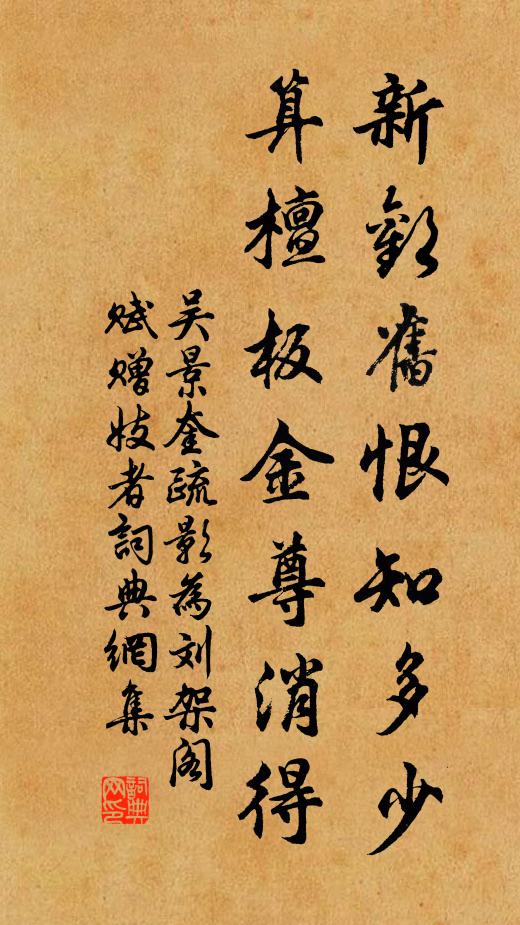 新歡舊恨知多少
算檀板金尊消得
吴景奎疏影為刘架阁
赋赠妓者詞典網集
詞典网印